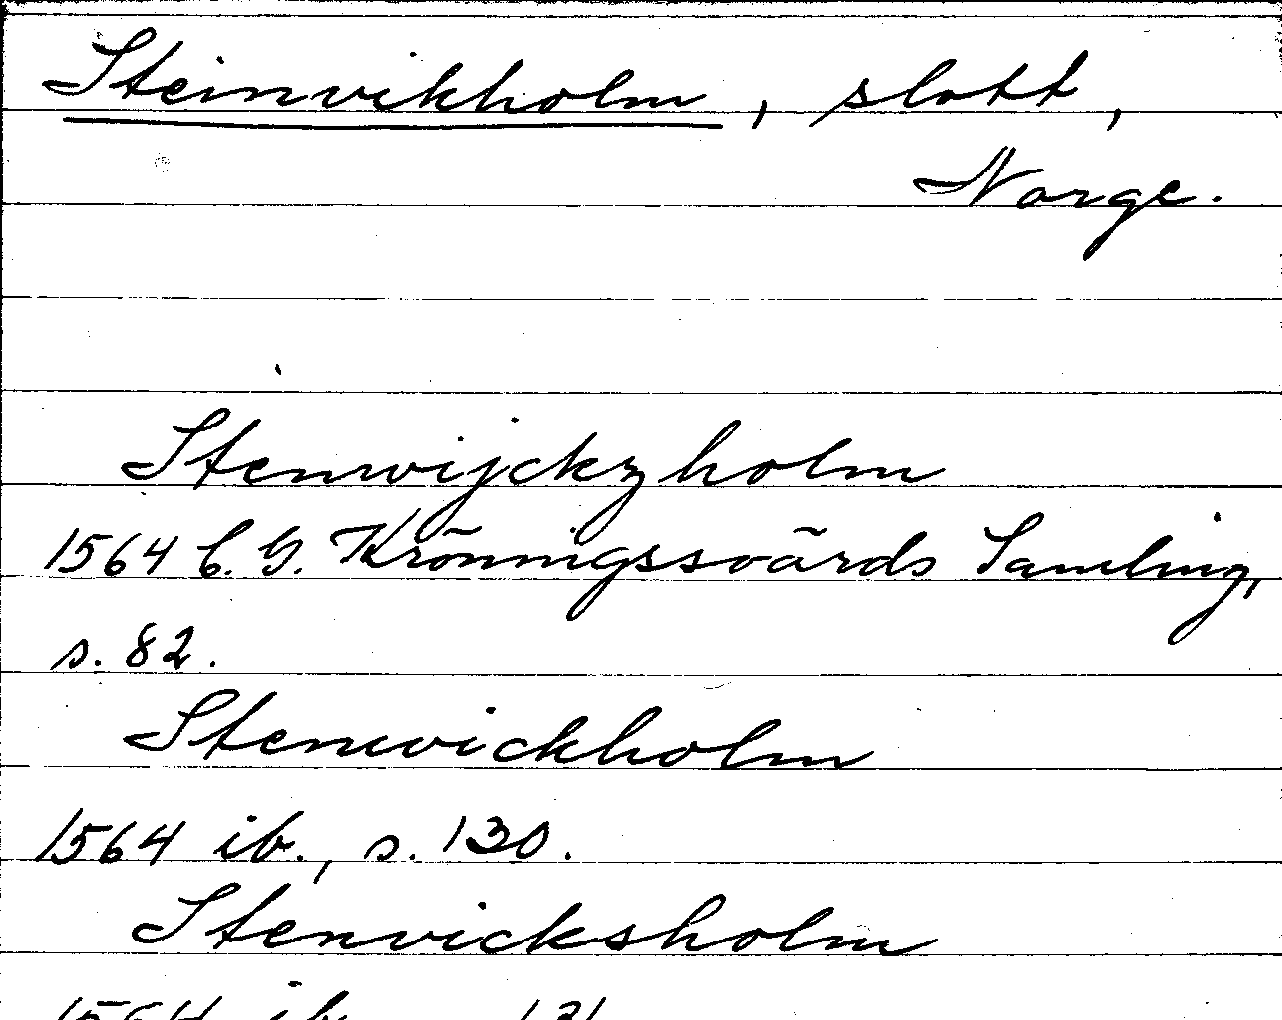 Steinvikholm, slott,
Norge.
Stenwijckzholm
1564 C. G. Kröningssvärds Samling,
s. 82.
Stenwickholm
1564 ib., s. 130.
Stenvicksholm
1564 ib. 131